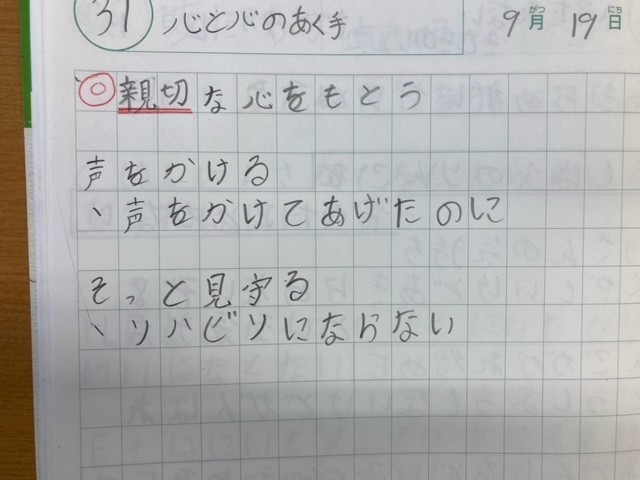 31 心と心のあく手 9月19日
◎親切な心をもとう
声をかける
、声をかけてあげたのに
そっと見守る
、リハビリにならない